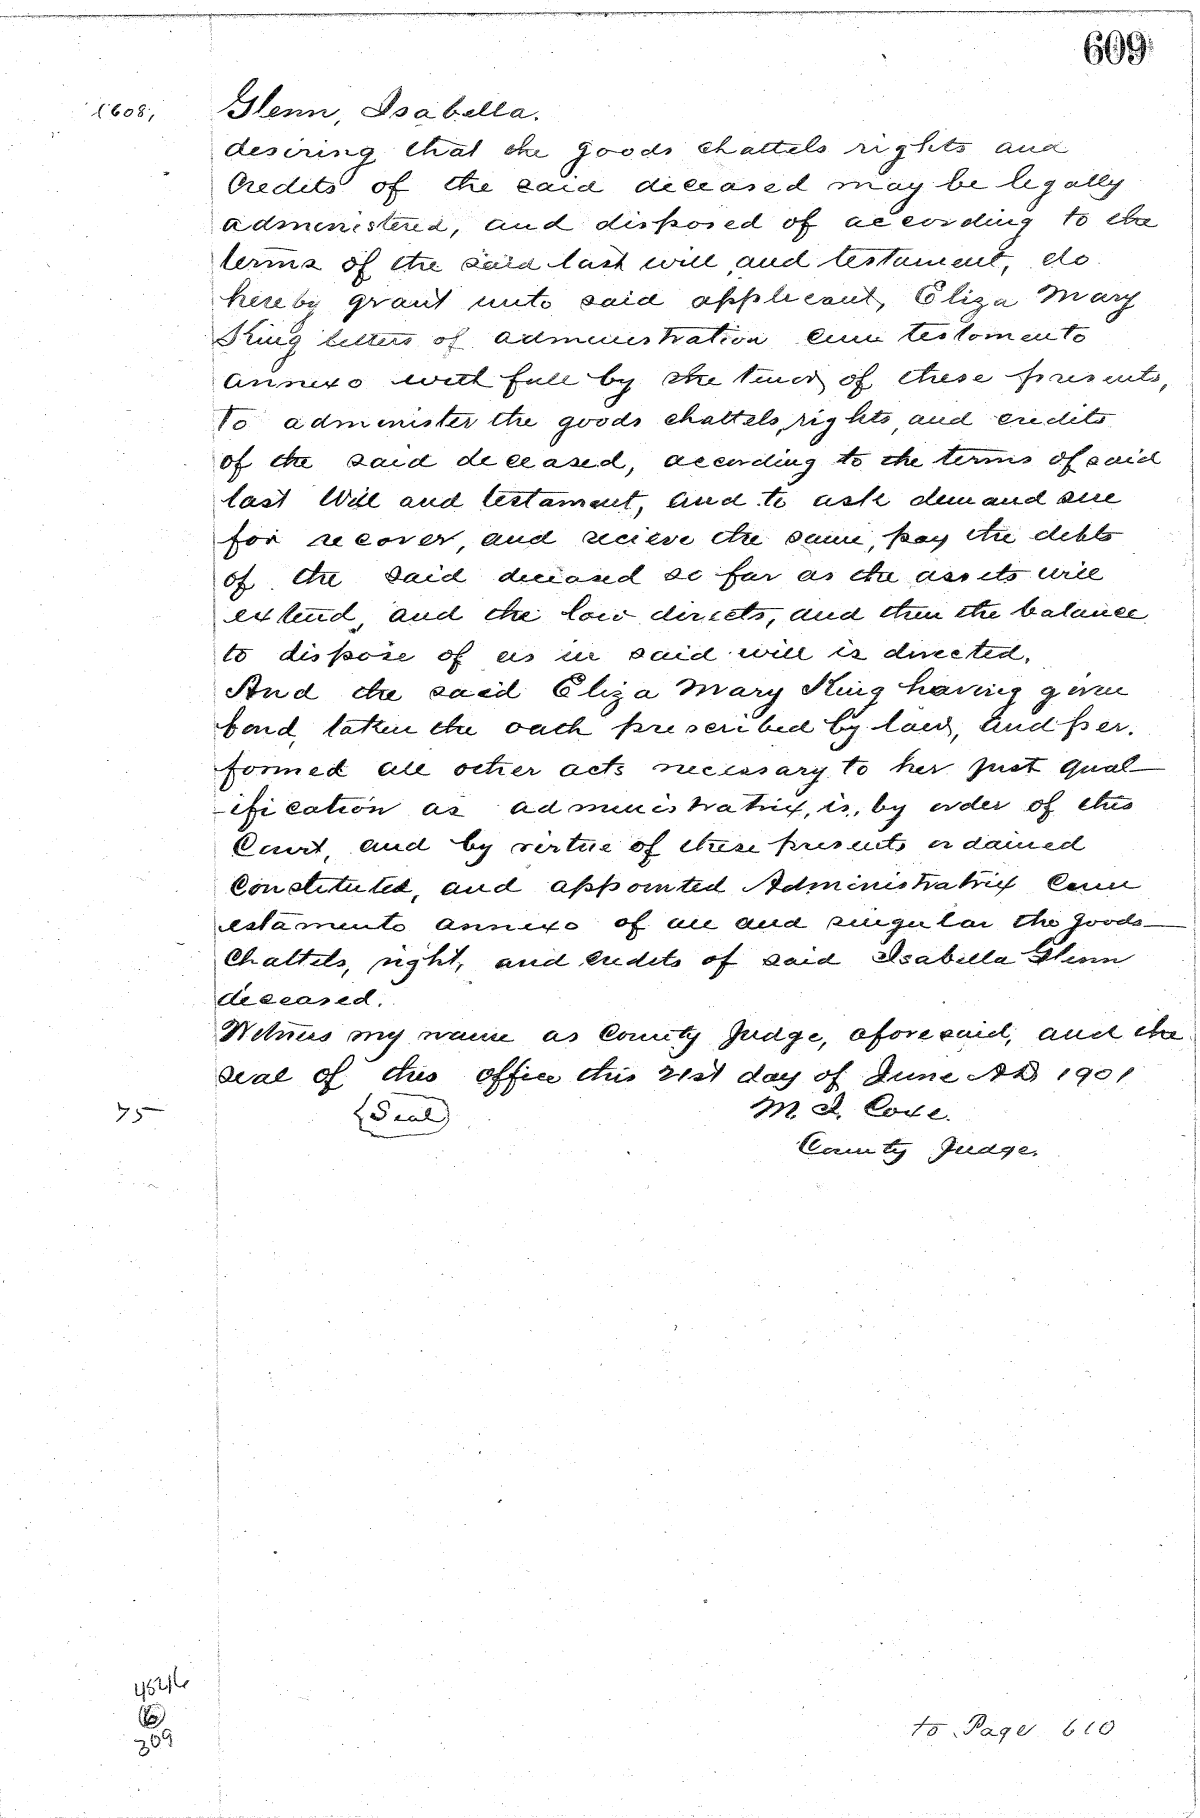 609
(608,
Glenn, Isabella.
desiring that the goods chattels rights and
Credits of the said deceased may be legally
administered, and disposed of according to the
terms of the said last will and testament, do
hereby grant unto said applicant, Eliza Mary
King letters of administration cum testomento
annexo with full by the tenor of these presents,
To administer the goods chattels, rights, and credits
of the said deceased, according to the terms of said
last Will and testament, and to ask demand sue
for recover, and recieve the same, pay the debts
of the said deceased so far as the assets will
extend, and the law directs, and then the balance
to dispose of as in said will is directed.
And the said Eliza Mary King having given
bond, taken the oath prescribed by law, and per.
formed all other acts necessary to her just qual-
-ification as administratrix, is, by order of this
Court, and by virtue of these presents ordained
Constituted, and appointed Administratrix Cum
estamento annexo of all and singular the goods
Chattels, right, and credits of said Isabella Glenn
deceased.
Witness my name as County Judge, aforesaid, and the
seal of this office this 21st day of June AD 1901
75 (Seal) M. I. Coxe.
County Judge.
309
to Page 610